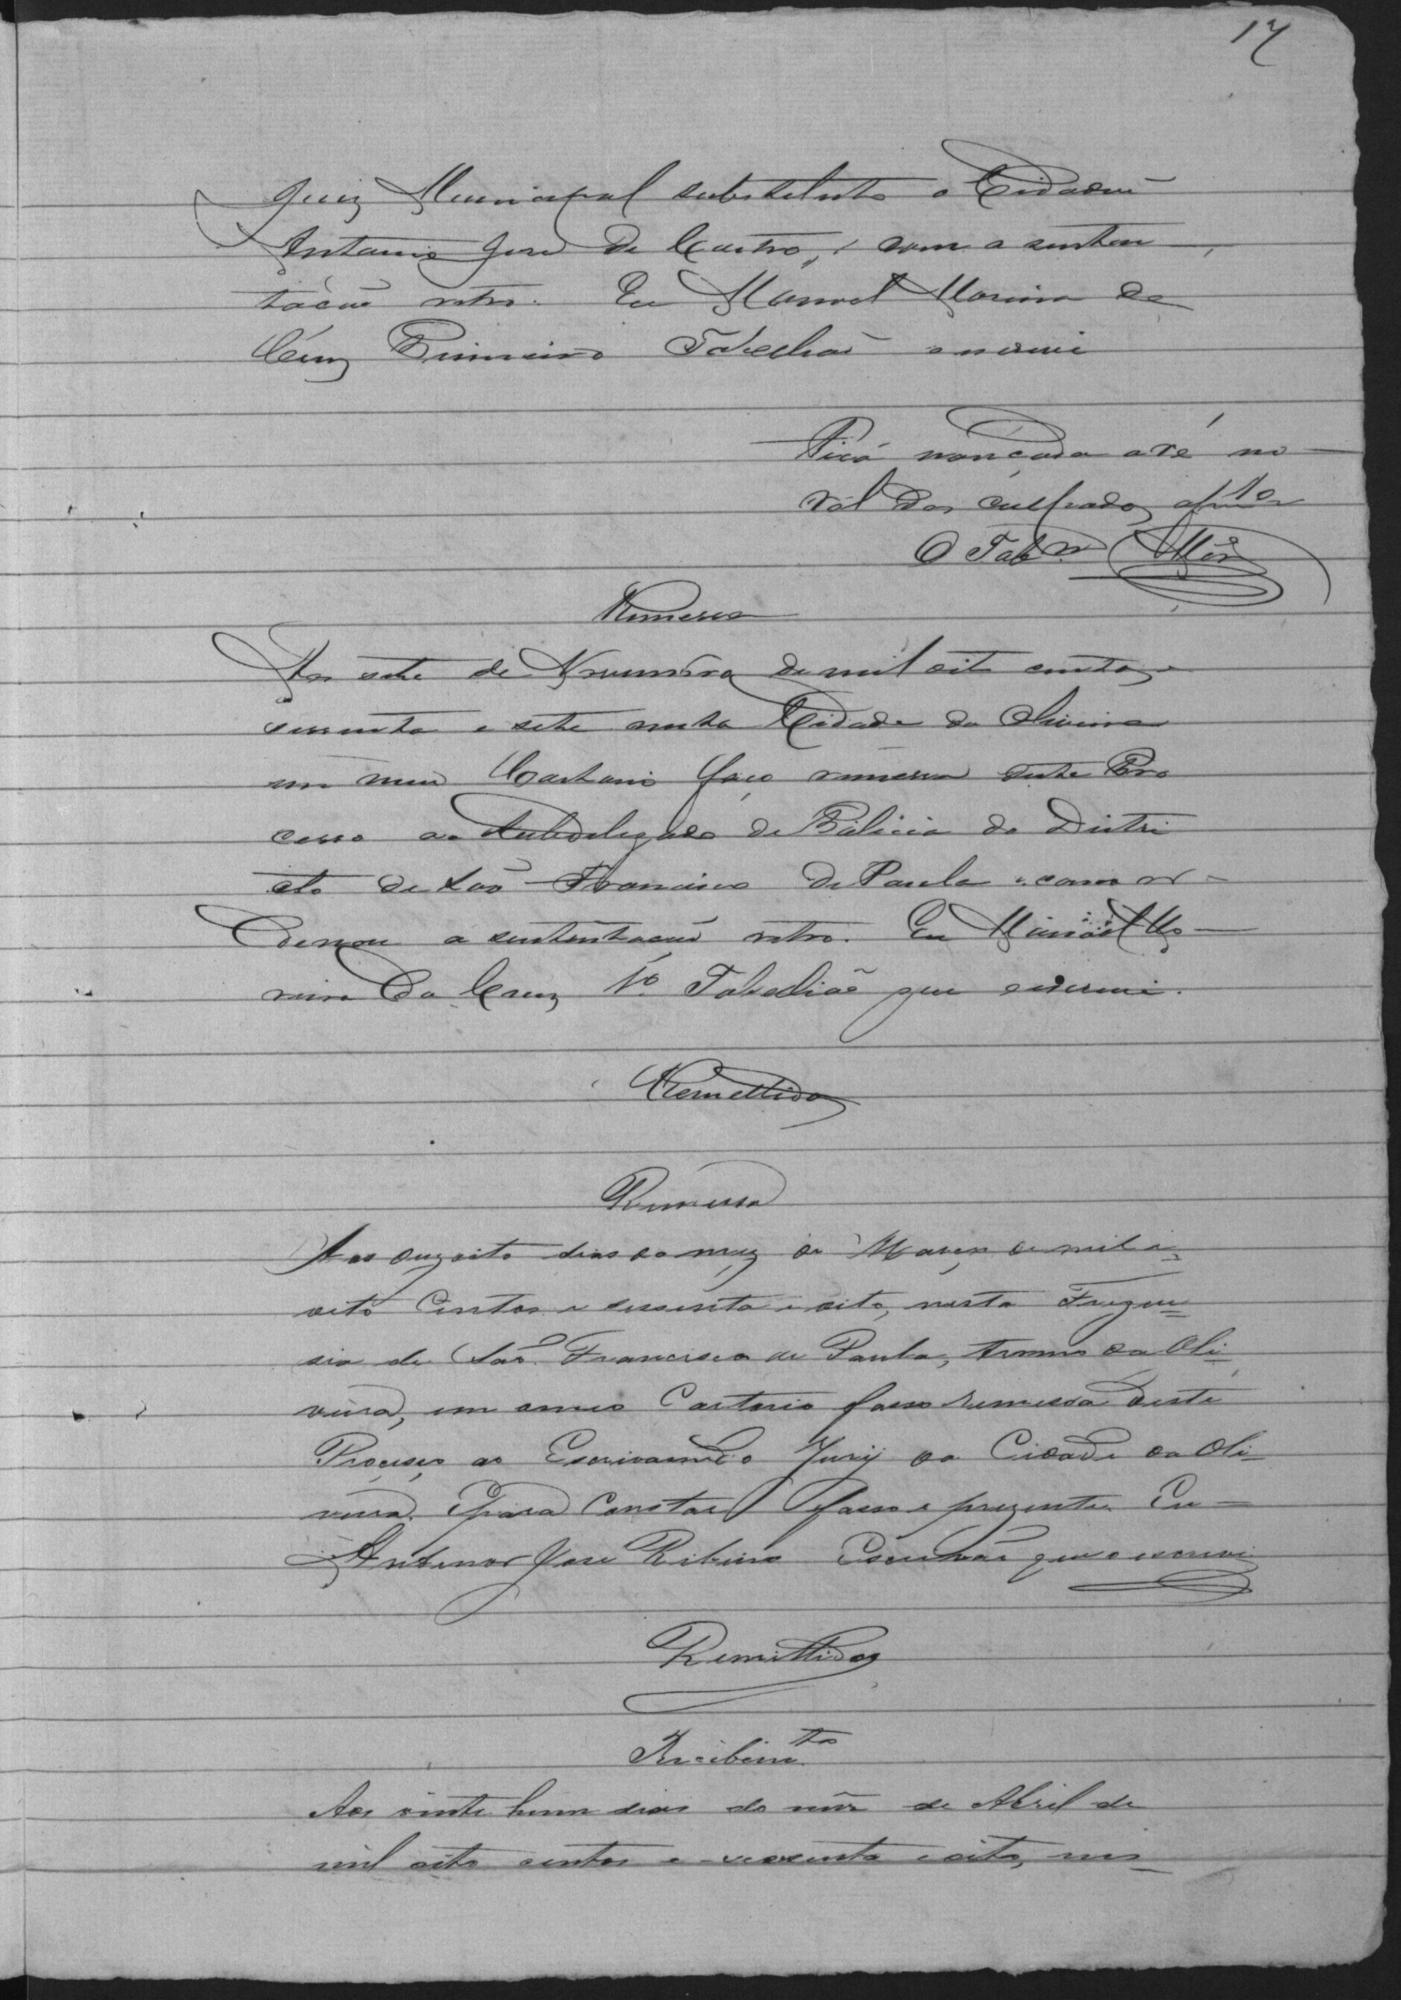 17
Juiz Municipal substituto o Cidadaõ
Antonio José de Castro, com a susten
tacaõ retro. Eu Manoel Moreira da
Cruz Primeiro Tabelliaõ escrevi
Fica lançada a ré no
rol dos culpados,
O Tab.m
Remessa
Aos sete de Novembro de mil oito centos e
sessenta e sete nesta Cidade da Oliveira
em meu Cartorio faço remessa deste Pro
cesso ao Subdelegado de Policia do Distri
cto de Saõ Francisco de Paula como or-
denou a sustentacaõ retro. Eu Manoel Mo-
reira da Cruz 1º Tabelliaõ que escrevi.
Remettidos
Remessa
Aos dezoito dias do mez de Março de mil e
oito Centos e sessenta e oito, nesta Fregue=
sia de Saõ Francisco de Paula, termo da Oli=
veira, em meu Cartorio fasso remessa deste
Processo ao Escrivam do Jury da Cidade da Oli=
veira. E para Constar fasso o prezente. Eu
Antenor José Ribeiro Escrivaõ que o escrevi
Remettidos
Recebim.to
Aos vinte hum dias do mez de Abril de
mil oito centos e sessenta e oito, nes=